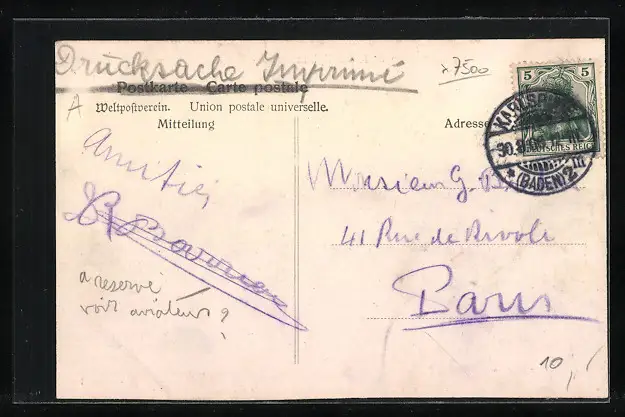 Drucksache Imprimé
x7500
Postkarte — Carte postale
A
Weltpostverein. Union postale universelle.
Mitteilung
Adresse
5 5
DEUTSCHES REICH
KARLSRUHE
(BADEN) 2
Amitiés
Monsieur G.
41 Rue de Rivoli
Paris
a reservé
voir aviateur?
10,